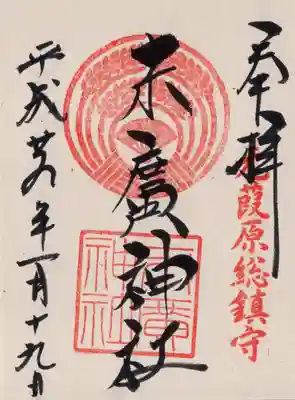 奉拝
葭原総鎮守
末廣神社
平成廿八年一月十九日